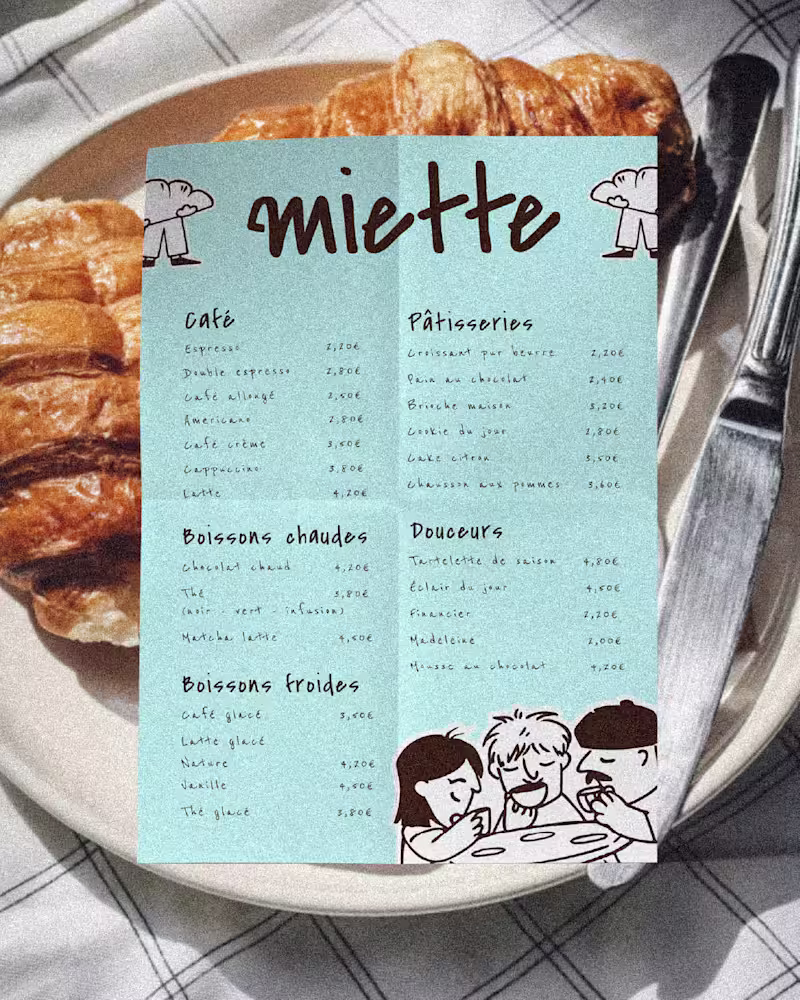 miette
Café
Espresso 2,20€
Double espresso 2,80€
Café allongé 2,50€
Americano 2,80€
Café crème 3,50€
Cappuccino 3,80€
Latte 4,20€
Boissons chaudes
Chocolat chaud 4,20€
Thé 3,80€
(noir - vert - infusion)
Matcha latte 4,50€
Boissons froides
Café glacé 3,50€
Latte glacé
Nature 4,20€
Vanille 4,50€
Thé glacé 3,80€
Pâtisseries
Croissant pur beurre 2,20€
Pain au chocolat 2,40€
Brioche maison 3,20€
Cookie du jour 2,80€
Cake citron 3,50€
Chausson aux pommes 3,60€
Douceurs
Tartelette de saison 4,80€
Éclair du jour 4,50€
Financier 2,20€
Madeleine 2,00€
Mousse au chocolat 4,20€